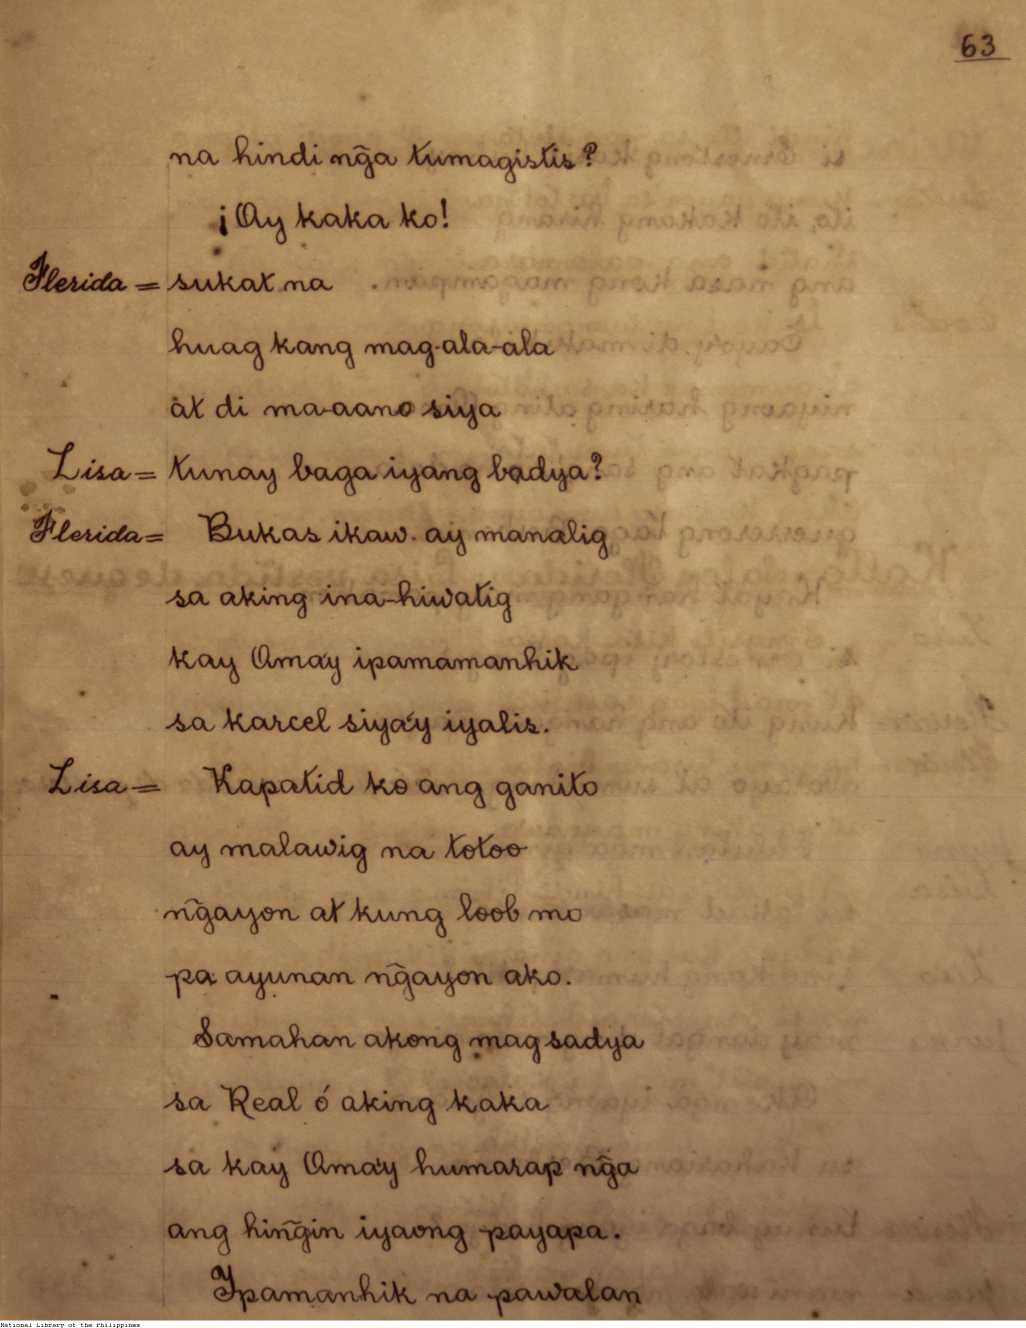 63
na hindi ng̃a tumagistis?
¡Ay kaka ko!
Flerida = sukat na
huag kang mag-ala-ala
at di ma-aano siya
Lisa = tunay baga iyang badya?
Flerida = Bukas ikaw ay manalig
sa aking ina-hiwatig
kay Ama'y ipamamanhik
sa karcel siya'y iyalis.
Lisa = Kapatid ko ang ganito
ay malawig na totoo
ng̃ayon at kung loob mo
pa ayunan ng̃ayon ako.
Samahan akong mag sadya
sa Real ó aking kaka
sa kay Ama'y humarap ng̃a
ang hing̃in iyaong payapa.
Ypamanhik na pawalan
National Library of the Philippines